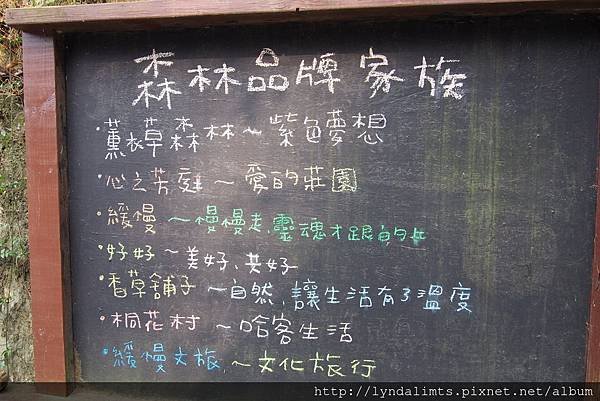 森林品牌家族
·薰衣草森林~紫色夢想
·心之芳庭~愛的莊園
·緩慢~慢慢走,靈魂才跟的上
·好好~美好、共好
·香草舖子~自然,讓生活有了溫度
·桐花村~哈客生活
·緩慢文旅,~文化旅行
http://lyndalimts.pixnet.net/album